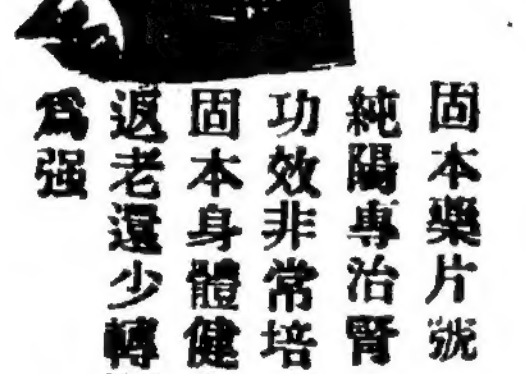 固本藥片號
純陽專治腎
功效非常培
固本身體健
返老還少轉
爲强